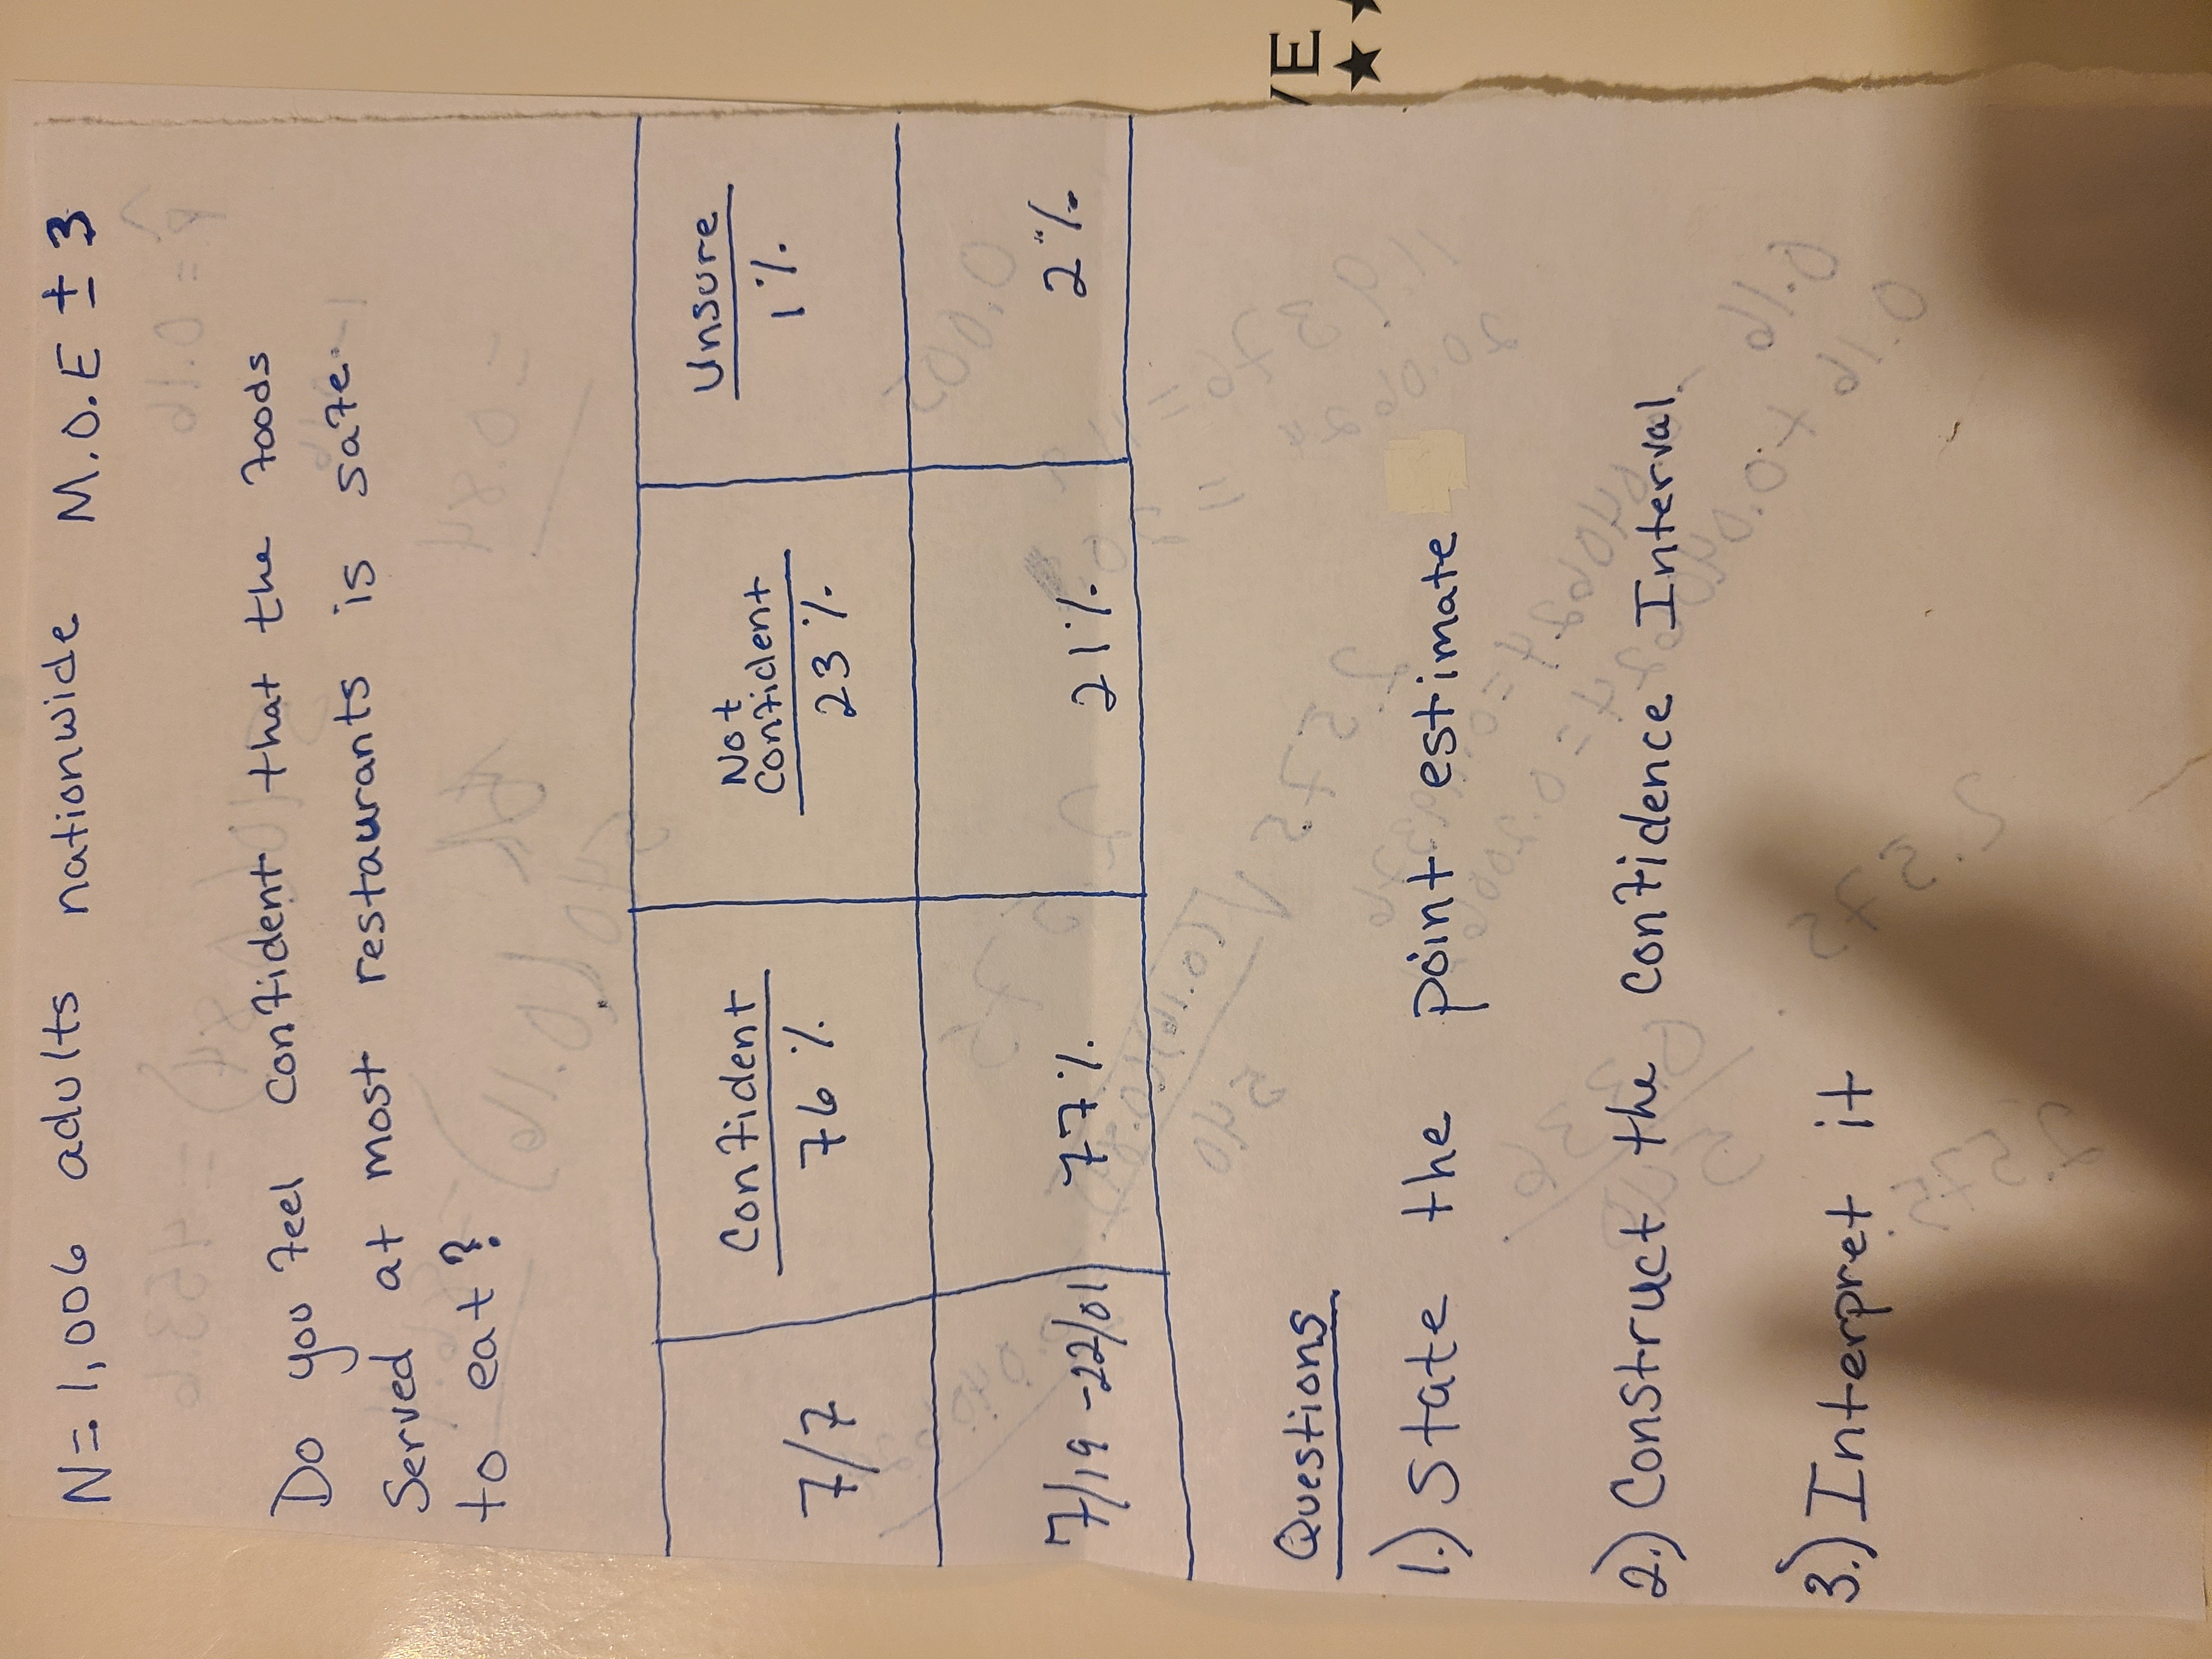 N=1,006 adults nationwide M.O.E ± 3
Do you feel confident that the foods
Served at most restaurants is safe
to eat?
Confident Not Confident Unsure
7/7 76% 23% 1%
7/19 -22/01 77% 21% 2%
Questions
1.) State the point estimate
2.) Construct the confidence Interval
3.) Interpret it
VE